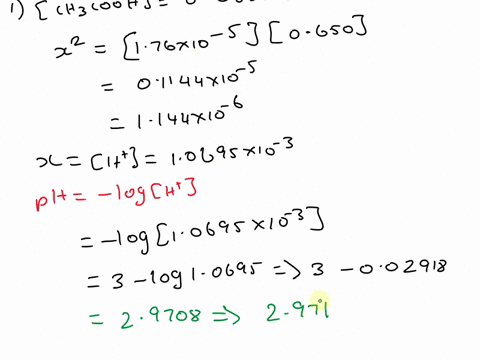 1) [CH3COOH] =
x² = [1.76×10⁻⁵][0.650]
= 0.1144×10⁻⁵
= 1.144×10⁻⁶
x = [H⁺] = 1.0695×10⁻³
pH = -log[H⁺]
= -log[1.0695×10⁻³]
= 3 - log 1.0695 => 3 - 0.02918
= 2.9708 => 2.971